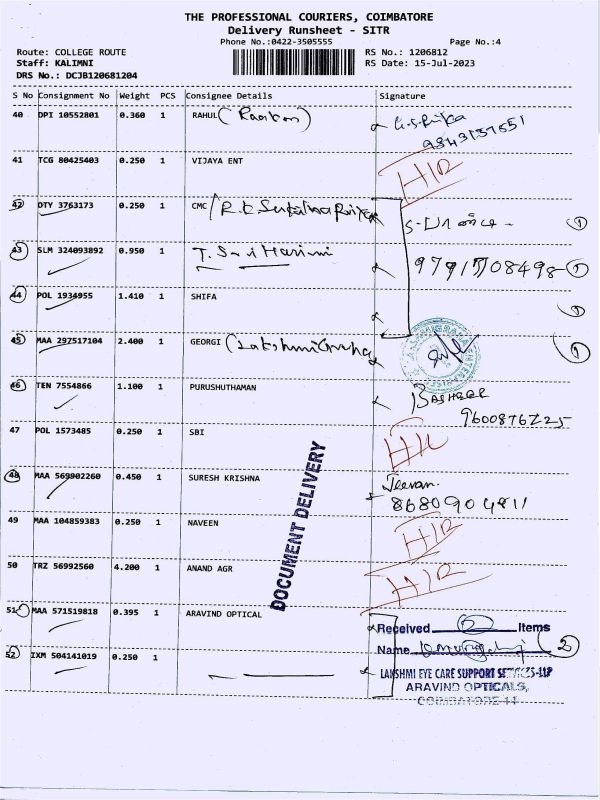 THE PROFESSIONAL COURIERS, COIMBATORE
Delivery Runsheet - SITR
Phone No.:0422-3505555 Page No.:4
Route: COLLEGE ROUTE RS No.: 1206812
Staff: KALIMNI RS Date: 15-Jul-2023
DRS No.: DCJB120681204
S No Consignment No Weight PCS Consignee Details Signature
40 DPI 10552801 0.360 1 RAHUL
41 TCG 80425403 0.250 1 VIJAYA ENT
42 DTY 3763173 0.250 1 CMC
43 SLM 324093892 0.950 1 T. Sri Harini
9791708498 1
44 POL 1934955 1.410 1 SHIFA 1
45 MAA 297517104 2.400 1 GEORGI 1
46 TEN 7554866 1.100 1 PURUSHUTHAMAN
47 POL 1573485 0.250 1 SBI
48 MAA 569902260 0.450 1 SURESH KRISHNA Jeevan.
8680904811
49 MAA 104859383 0.250 1 NAVEEN
50 TRZ 56992560 4.200 1 ANAND AGR
DOCUMENT DELIVERY
51 MAA 571519818 0.395 1 ARAVIND OPTICAL
Received Items
Name 2
52 IXM 504141019 0.250 1
LAKSHMI EYE CARE SUPPORT SERVICES-LLP
ARAVIND OPTICALS,
COIMBATORE-14